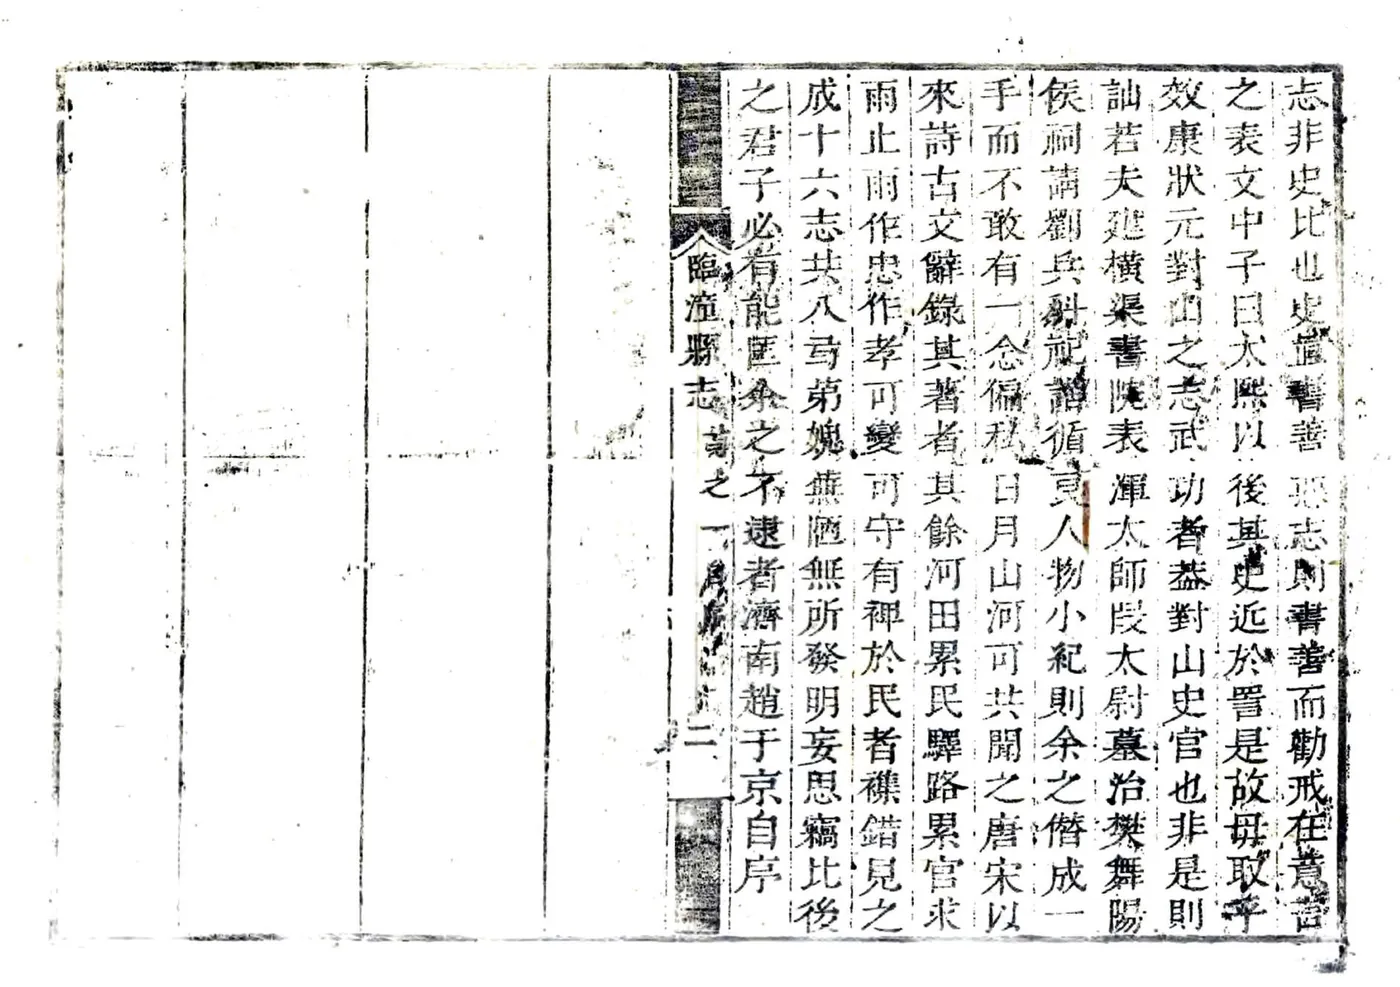 志非史比也史直書善惡志則書善而勸戒在意言
之表文中子曰太熙以後其史近於詈是故毋取乎
效康狀元對山之志武功者葢對山史官也非是則
訕若夫建橫渠書院表渾太師段太尉墓治樊舞陽
侯祠請劉兵科祀諸循吏人物小紀則余之僭成一
手而不敢有一念偏私日月山河可共聞之唐宋以
來詩古文辭錄其著者其餘河田累民驛路累官求
雨止雨作忠作孝可變可守有裨於民者襍錯見之
成十六志共八弓第媿蕪陋無所發明妄思竊比後
之君子必有能匡余之不逮者濟南趙于京自序
臨潼縣志 之一 二